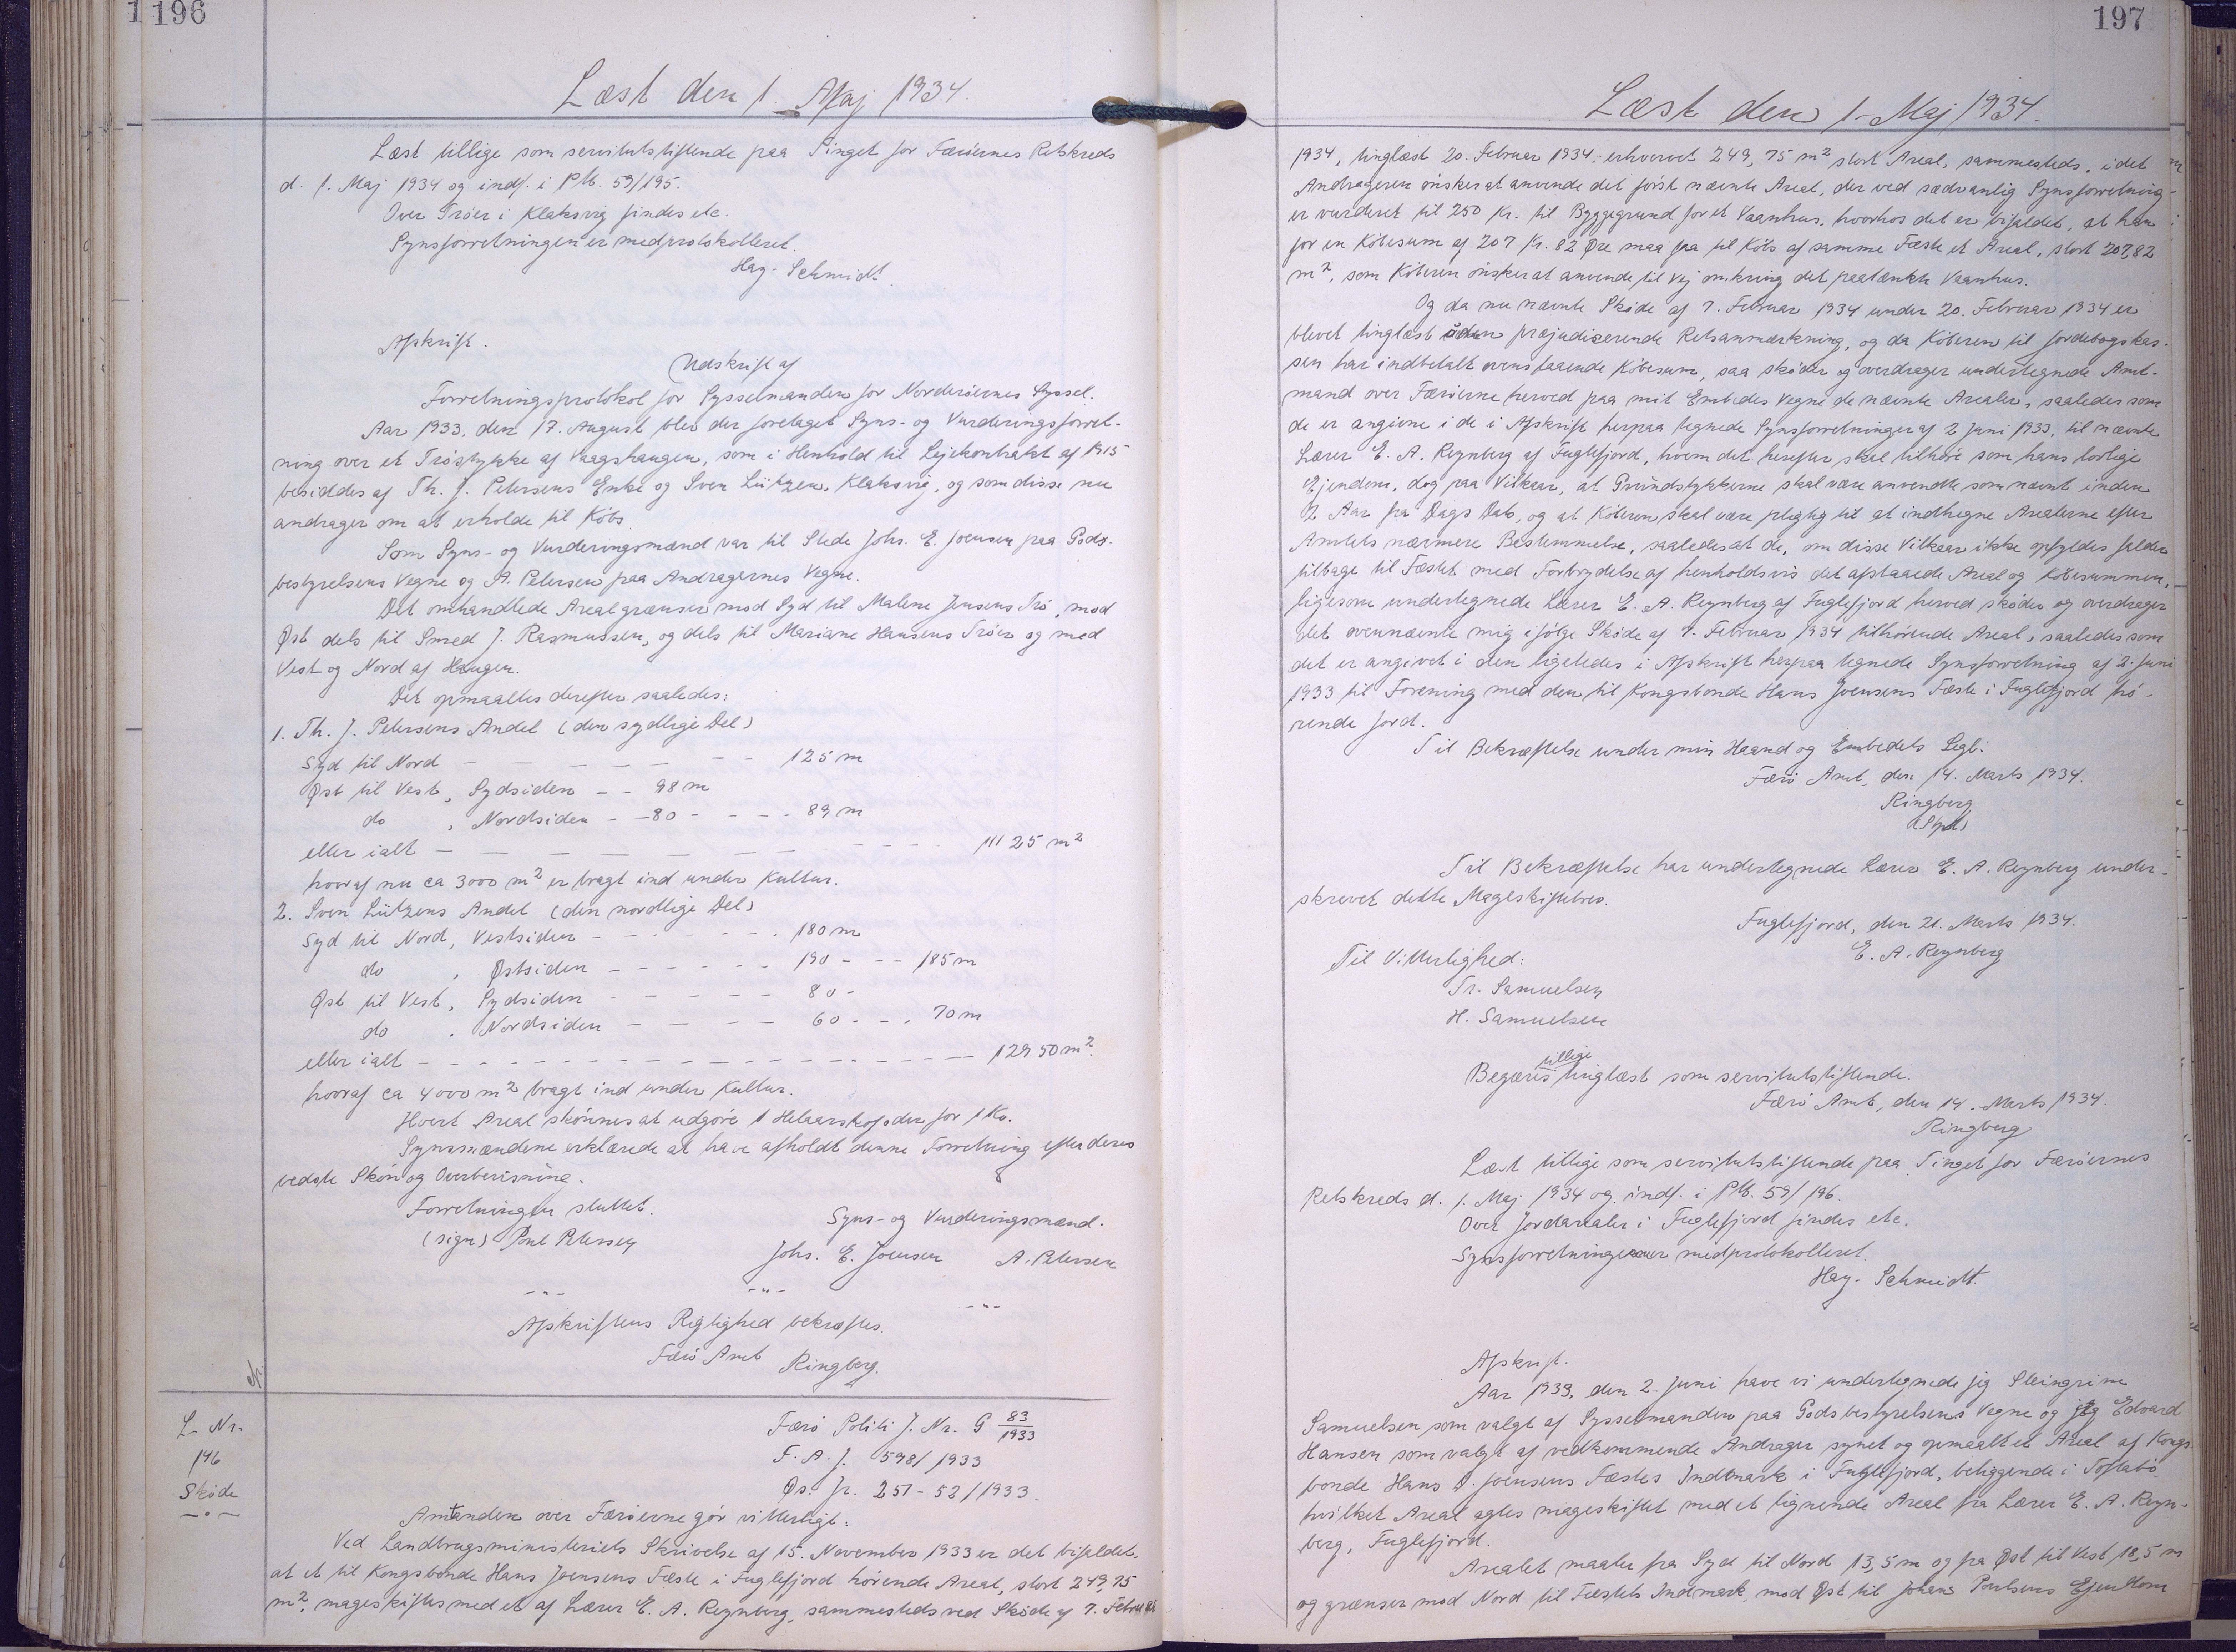 196
Læst den 1. Maj 1934.
Læst tillige som servitutstiftende paa Tinget for Færøernes Retskreds
d. 1. Maj 1934 og indf. i P.M. 59/195.
Over Trøer i Klaksvig findes etc.
Synsforretningen er medprotokolleret.
Hay-Schmidt.
Afskrift.
Udskrift af
Forretningsprotokol for Sysselmanden for Norderøernes Syssel.
Aar 1933, den 17. August blev der foretaget Syns- og Vurderingsforret-
ning over et Trøstykke af Vaagshaugen, som i Henhold til Lejekontrakt af 1915
besiddes af Th. J. Petersens Enke og Sven Lützen, Klaksvig, og som disse nu
andrager om at erholde til Købs.
Som Syns- og Vurderingsmænd var til Stede Johs. E. Joensen paa Gods-
bestyrelsens Vegne og A. Petersen paa Andragernes Vegne.
Det omhandlede Areal grænser mod Syd til Malene Jensens Trø, mod
Øst dels til Smed J. Rasmussen, og dels til Mariane Hansens Trøer og med
Vest og Nord af Haugen.
Det opmaaltes derefter saaledes:
1. Th. J. Petersens Andel (den sydlige Del)
Syd til Nord - - - - - - - 125 m
Øst til Vest, Sydsiden - - 98 m
do , Nordsiden - - 80 - - - - 89 m
eller ialt - - - - - - - - - - 11125 m²
hvoraf nu ca 3000 m² er bragt ind under Kultur.
2. Sven Lützens Andel (den nordlige Del)
Syd til Nord, Vestsiden - - - - - - 180 m
do , Østsiden - - - - - - 190 - - - 185 m
Øst til Vest, Sydsiden - - - - - 80 -
do , Nordsiden - - - - - 60 - - - 70 m
eller ialt - - - - - - - - - - - - - - - 12950 m².
hvoraf ca 4000 m² bragt ind under Kultur.
Hvert Areal skønnes at udgøre 1 Helaarskofoder for 1 Ko.
Synsmændene erklærede at have afholdt denne Forretning efter deres
bedste Skøn og Overbevisning.
Forretningen sluttet.
Syns- og Vurderingsmænd.
(sign) Poul Petersen Johs. E. Joensen A. Petersen
Afskriftens Rigtighed bekræftes.
Færø Amt Ringberg.
L. Nr.
146
Skøde
Færø Politi J. Nr. G 83/1933
F. A. J. 598/1933
Øs. Jr. 251-52/1933.
Amtmanden over Færøerne gør vitterligt:
Ved Landbrugsministeriets Skrivelse af 15. November 1933 er det bifaldet,
at et til Kongsbonde Hans Joensens Fæste i Fuglefjord hørende Areal, stort 249,75
m², mageskiftes med et af Lærer E. A. Reynberg, sammesteds ved Skøde af 7. Februar
197
Læst den 1. Maj 1934.
1934, tinglæst 20. Februar 1934 erhvervet 249,75 m² stort Areal, sammesteds, idet
Andrageren ønsker at anvende det først nævnte Areal, der ved sædvanlig Synsforretning
er vurderet til 250 Kr. til Byggegrund for et Vaanhus, hvorhos det er bifaldet, at han
for en Købesum af 207 Kr. 82 Øre maa faa til Købs af samme Fæste et Areal, stort 207,82
m², som Køberen ønsker at anvende til Vej omkring det paatænkte Vaanhus.
Og da nu nævnte Skøde af 7. Februar 1934 under 20. Februar 1934 er
blevet tinglæst uden præjudicerende Retsanmærkning, og da Køberen til Jordebogskas-
sen har indbetalt ovenstaaende Købesum, saa skøder og overdrager undertegnede Amt-
mand over Færøerne herved paa mit Embedes Vegne de nævnte Arealer, saaledes som
de er angivne i de i Afskrift herpaa tegnede Synsforretninger af 2 Juni 1933, til nævnte
Lærer E. A. Reynberg af Fuglefjord, hvem det herefter skal tilhøre som hans lovlige
Ejendom, dog paa Vilkaar, at Grundstykkerne skal være anvendte som nævnt inden
2 Aar fra Dags Dato, og at Køberen skal være pligtig til at indhegne Arealerne efter
Amtets nærmere Bestemmelse, saaledes at de, om disse Vilkaar ikke opfyldes falder
tilbage til Fæstet med Fortrydelse af henholdsvis det afstaaede Areal og Købesummen,
ligesom undertegnede Lærer E. A. Reynberg af Fuglefjord herved skøder og overdrager
det ovennævnte mig ifølge Skøde af 7. Februar 1934 tilhørende Areal, saaledes som
det er angivet i den ligeledes i Afskrift herpaa tegnede Synsforretning af 2. Juni
1933 til Forening med den til Kongsbonde Hans Joensens Fæste i Fuglefjord hø-
rende Jord.
Til Bekræftelse under min Haand og Embedets Segl.
Færø Amt, den 14. Marts 1934.
Ringberg
(Segl)
Til Bekræftelse har undertegnede Lærer E. A. Reynberg under-
skrevet dette Mageskiftebrev.
Fuglefjord, den 21. Marts 1934.
E. A. Reynberg
Til Vitterlighed:
Tr. Samuelsen
H. Samuelsen
Begæres tillige tinglæst som servitutstiftende.
Færø Amt, den 14. Marts 1934.
Ringberg
Læst tillige som servitutstiftende paa Tinget for Færøernes
Retskreds d. 1. Maj 1934 og indf. i P.M. 59/196.
Over Jordarealer i Fuglefjord findes etc.
Synsforretningerne er medprotokolleret.
Hay-Schmidt.
Afskrift.
Aar 1933, den 2. Juni have vi undertegnede jeg Steingrim
Samuelsen som valgt af Sysselmanden paa Godsbestyrelsens Vegne og jeg Edvard
Hansen som valgt af vedkommende Andrager synet og opmaalt et Areal af Kongs-
bonde Hans J. Joensens Fæstes Indmark i Fuglefjord, beliggende i Toftabø
hvilket Areal agtes mageskiftet med et lignende Areal fra Lærer E. A. Reyn-
berg, Fuglefjord.
Arealet maaler fra Syd til Nord 13,5 m og fra Øst til Vest 18,5 m
og grænser mod Nord til Fæstets Indmark, mod Øst til Johans Poulsens Ejendom